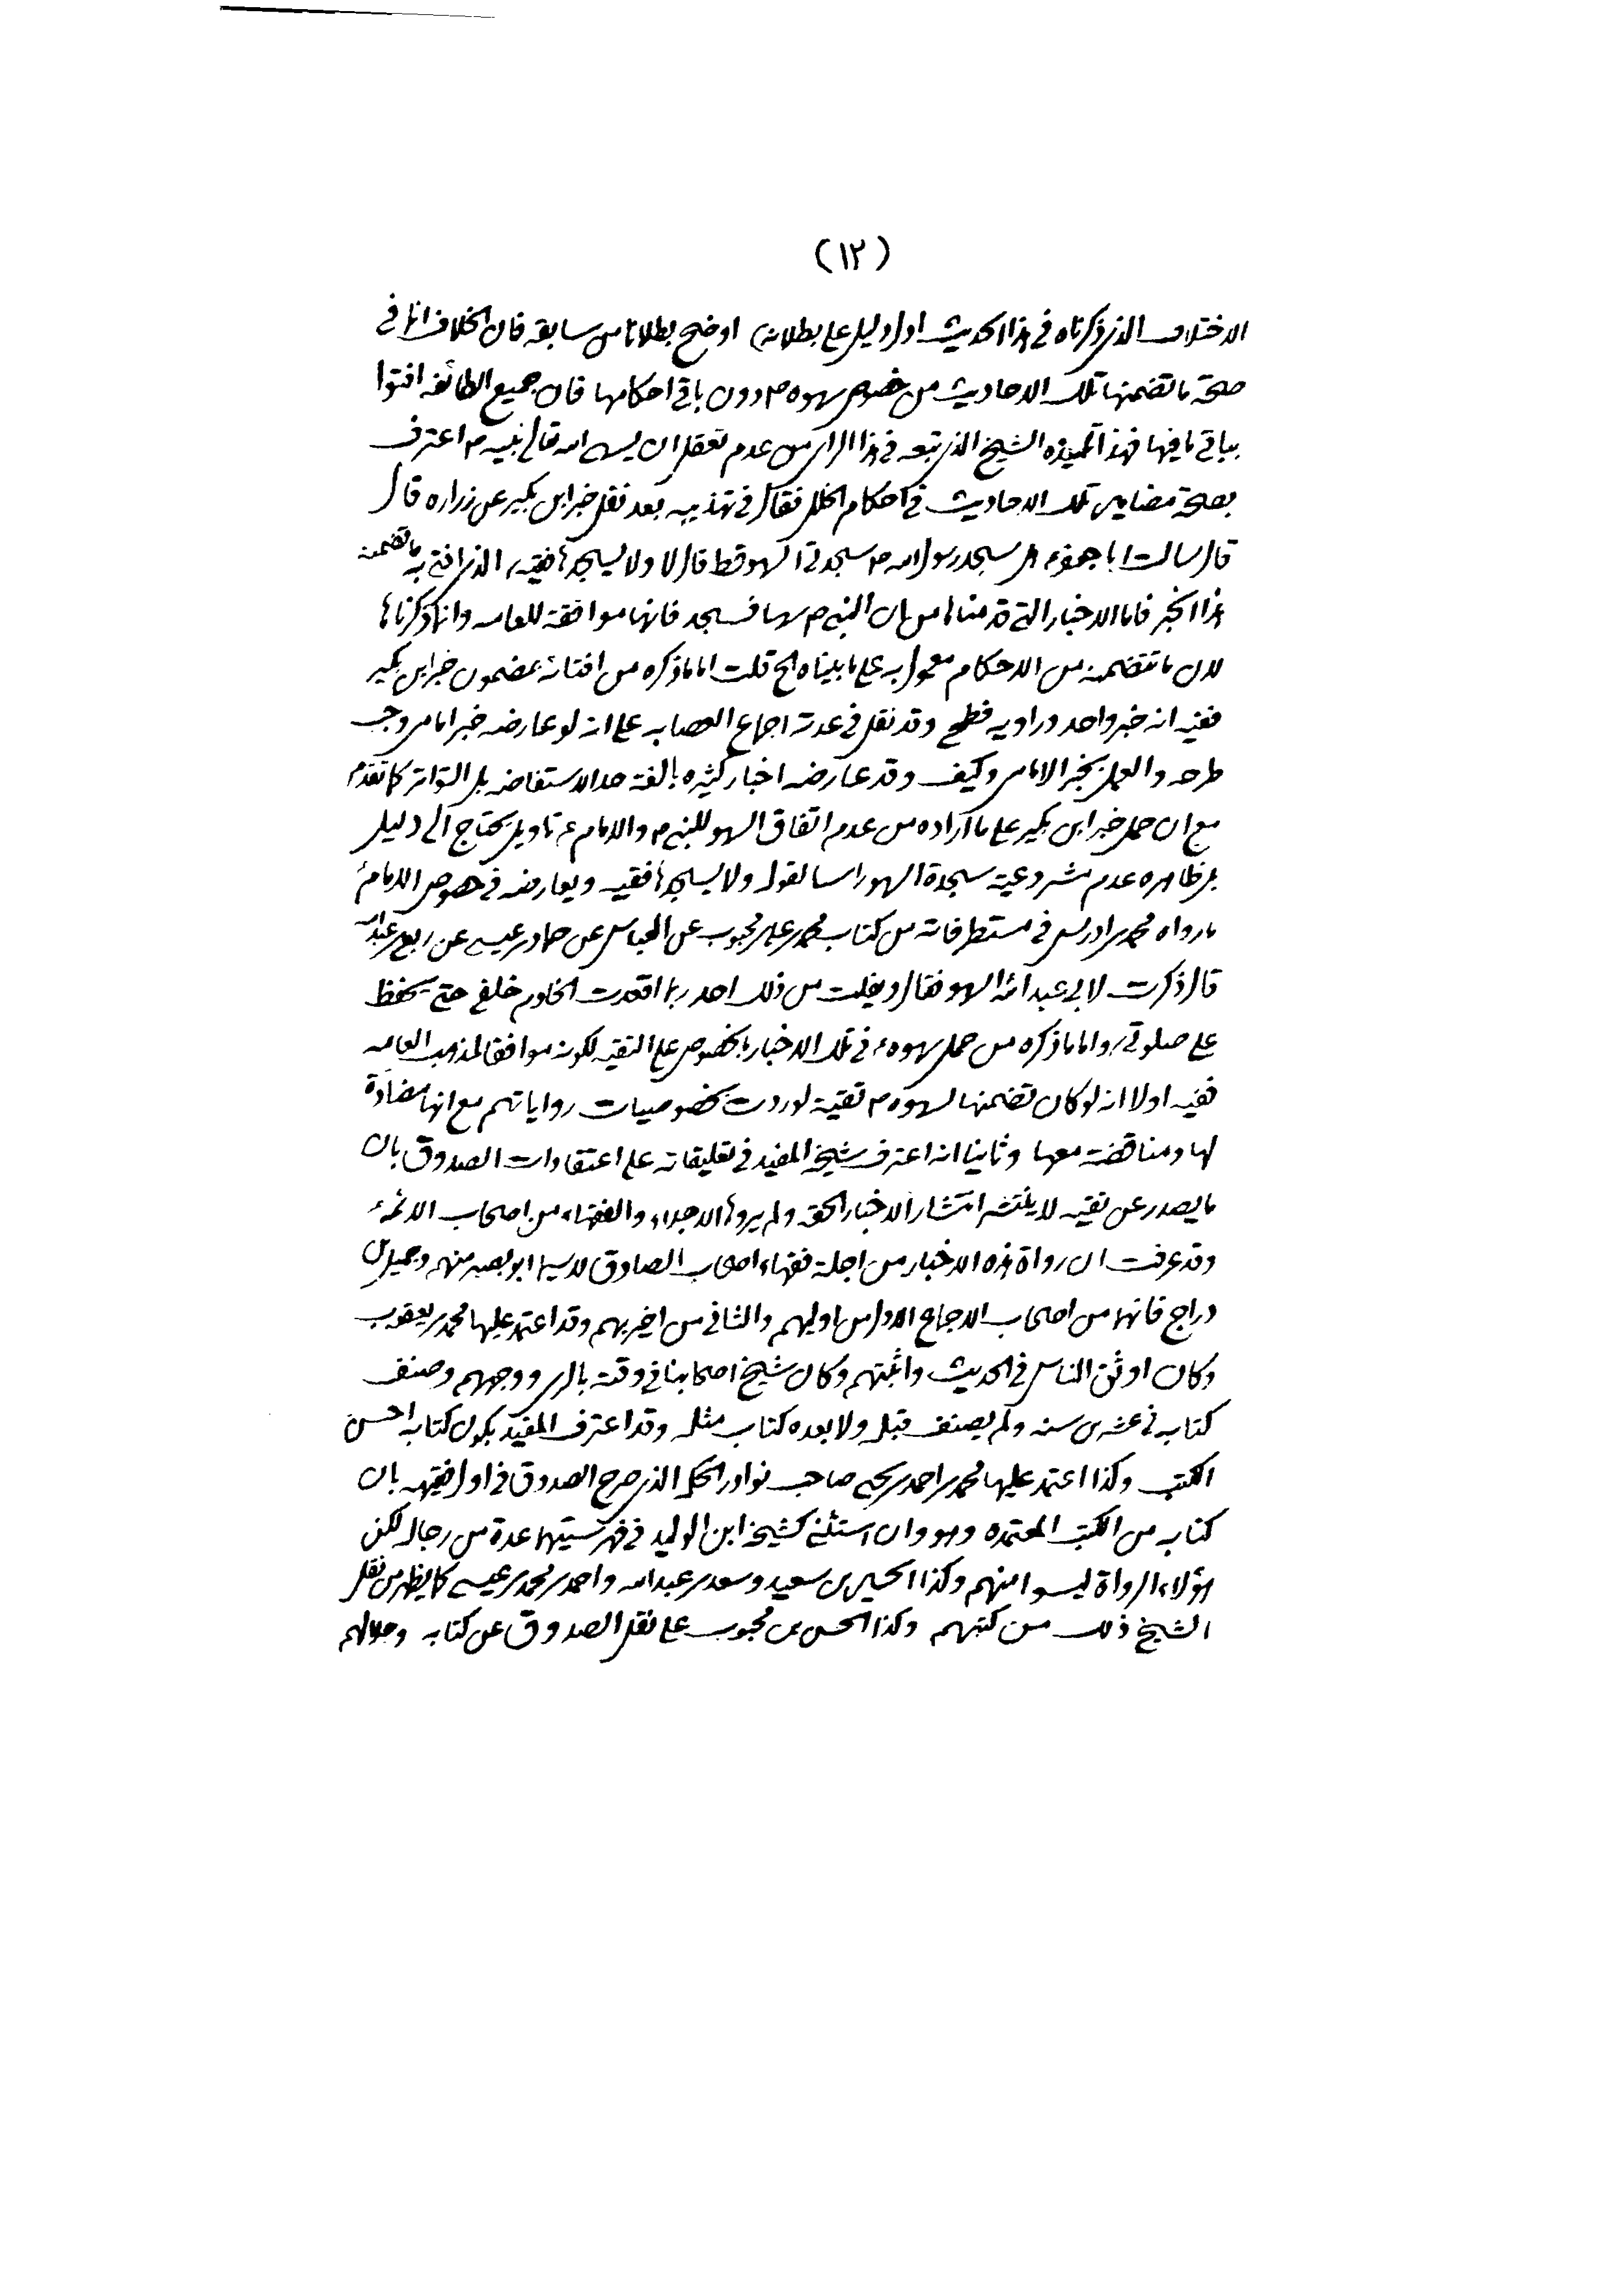 (١٢)
الاختلاف الذى ذكرناه فى هذا الحديث ادل دليل على بطلانه) اوضح بطلانا من سابقه فان الخلاف انما فى
صحة ما تضمنها تلك الاحاديث من خصوص سهوه ص دون باقى احكامها فان جميع الطائفه افتوا
بباقى ما فيها فهذا تلميذه الشيخ الذى تبعه فى هذا الراى من عدم تعقل ان يسهى الله تعالى نبيه ص اعترف
بصحة مضامين تلك الاحاديث فى احكام الخلل فقال فى تهذيبه بعد نقل خبر ابن بكير عن زراره قال
قال سالت ابا جعفر ع هل سجد رسول الله ص سجدتى السهو قط قال لا ولا يسجدهما فقيه، الذى افتى به ما تضمنه
هذا الخبر فاما الاخبار التى قدمناها من ان النبى ص سها فسجد فانها موافقة للعامه وانما ذكرناها
لان ما تتضمنه من الاحكام معمول به على ما بيناه الخ قلت اما ما ذكره من افتائه بمضمون خبر ابن بكير
ففيه انه خبر واحد وراويه فطحى وقد نقل فى عدته اجماع العصابه على انه لو عارضه خبر امامى وجب
طرحه والعمل بخبر الامامى وكيف وقد عارضه اخبار كثيره بالغة حد الاستفاضه بل التواتر كما تقدم
مع ان حمل خبر ابن بكير على ما اراده من عدم اتفاق السهو للنبى ص والامام ع تاويل يحتاج الى دليل
بل ظاهره عدم مشروعية سجدة السهو راسا لقوله ولا يسجدهما فقيه ويعارضه فى خصوص الامام ع
ما رواه محمد بن ادريس فى مستطرفاته من كتاب محمد بن على بن محبوب عن العباس عن حماد بن عيسى عن ربعى بن عبدالله
قال ذكرت لابى عبدالله ع السهو فقال ويفلت من ذلك احد ربما اقعدت الخادم خلفى حتى يحفظ
على صلوتى، واما ما ذكره من حمل سهوه ع فى تلك الاخبار بالخصوص على التقيه لكونه موافقا لمذهب العامه
ففيه اولا انه لو كان تضمنها لسهوه ص تقية لوردت بخصوصيات رواياتهم مع انها مضادة
لها ومناقضة معها وثانيا انه اعترف شيخه المفيد فى تعليقاته على اعتقادات الصدوق بان
ما يصدر عن تقيه لا ينتشر انتشار الاخبار الحقه ولم يروها الاجلاء والفقهاء من اصحاب الائمه ع
وقد عرفت ان رواة هذه الاخبار من اجلة فقهاء اصحاب الصادق لا سيما ابو بصير منهم وجميل بن
دراج فانهما من اصحاب الاجماع الاول من اوليهم والثانى من اخيريهم وقد اعتمد عليها محمد بن يعقوب
وكان اوثق الناس فى الحديث واثبتهم وكان شيخ اصحابنا فى وقته بالرى ووجههم وصنف
كتابه فى عشرين سنه ولم يصنف قبله ولا بعده كتاب مثله وقد اعترف المفيد بكون كتابه احسن
الكتب وكذا اعتمد عليها محمد بن احمد بن يحيى صاحب نوادر الحكمه الذى صرح الصدوق فى اول فقيهه بان
كتابه من الكتب المعتمده وهو وان استثنى كشيخه ابن الوليد فى فهرستيهما عدة من رجاله لكن
هؤلاء الرواة ليسوا منهم وكذا الحسين بن سعيد وسعد بن عبدالله واحمد بن محمد بن عيسى كما يظهر من نقل
الشيخ ذلك من كتبهم وكذا الحسن بن محبوب على نقل الصدوق عن كتابه وجلالهم